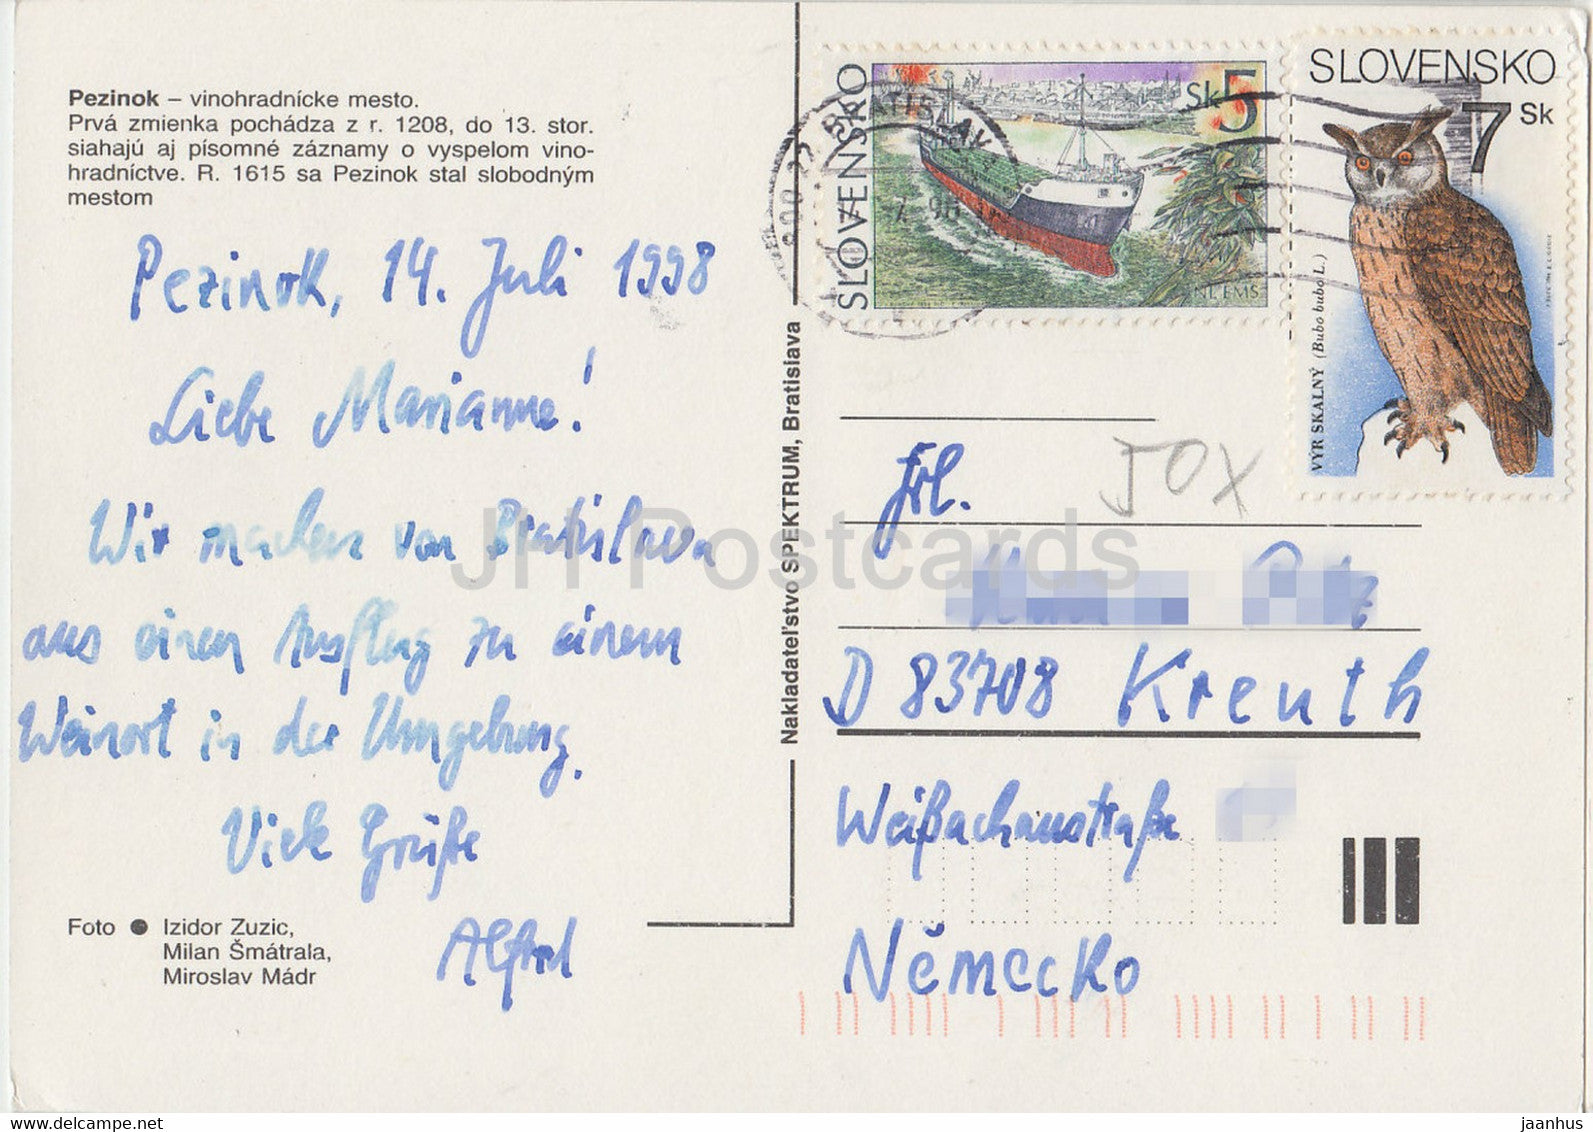 Pezinok – vinohradnícke mesto.
Prvá zmienka pochádza z r. 1208, do 13. stor.
siahajú aj písomné záznamy o vyspelom vino-
hradníctve. R. 1615 sa Pezinok stal slobodným
mestom
Pezinok, 14. Juli 1998
Liebe Marianne!
Wir machen von Bratislava
aus einen Ausflug zu einem
Weinort in der Umgebung.
Viele Grüße
Alfred
Foto ● Izidor Zuzic,
Milan Šmátrala,
Miroslav Mádr
Nakladateľstvo SPEKTRUM, Bratislava
SLOVENSKO
Sk 5
NL EMS
BRATISLAVA
SLOVENSKO
7 Sk
VÝR SKALNÝ (Bubo bubo L.)
50X
Frl.
D 83708 Kreuth
Weißachaustraße
Německo
JH Postcards
delcampe.net
jaanhus